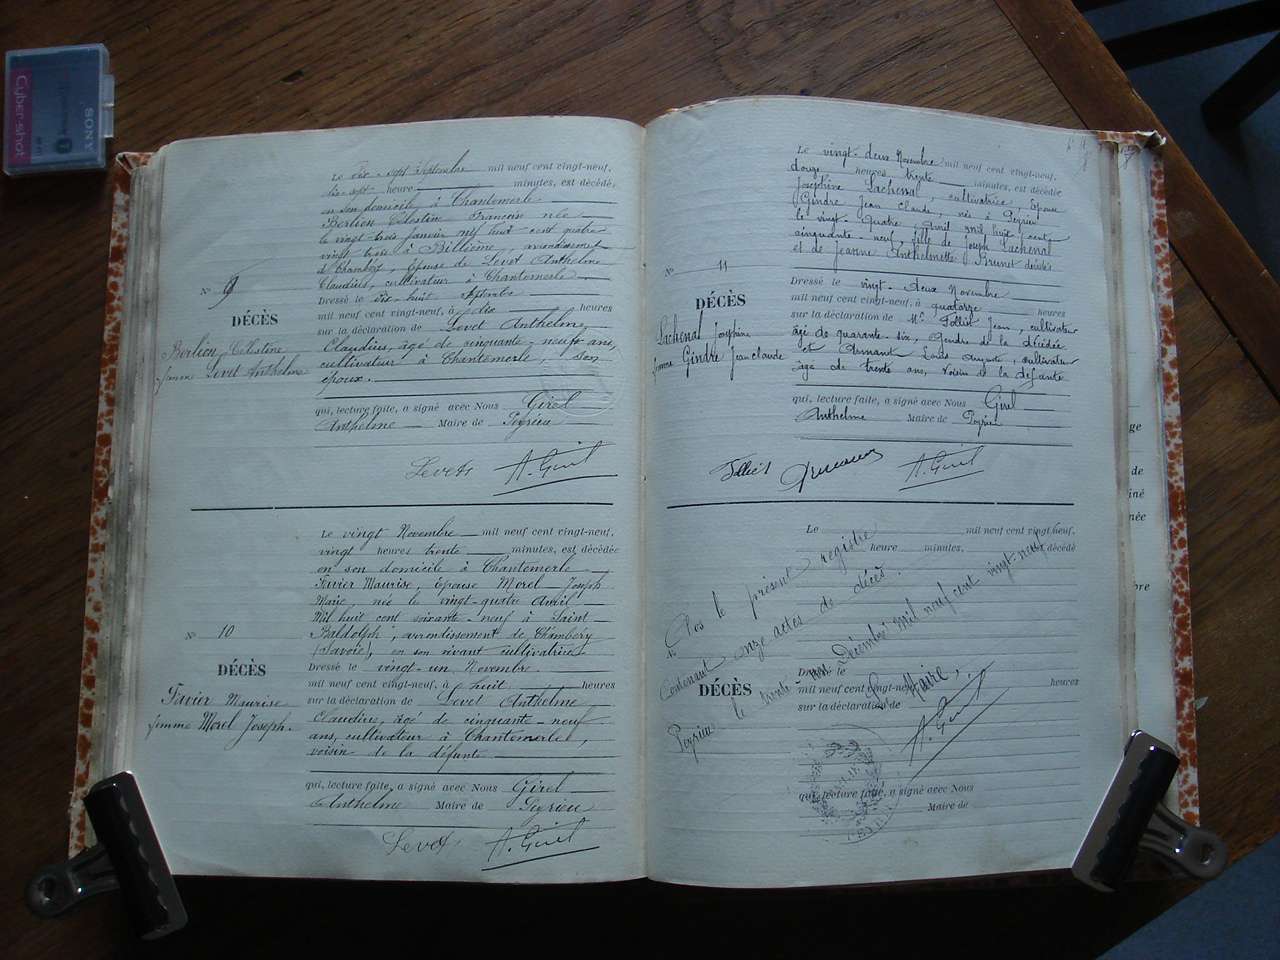 SONY
Cyber-shot
Le dix-sept Septembre mil neuf cent vingt-neuf,
dix-sept heure minutes, est décédée,
en son domicile à Chantemerle
Berlien Célestine Françoise née
le vingt trois Janvier mil huit cent quatre
vingt trois à Billième, arrondissement
de Chambéry, Épouse de Levet Anthelme
Claudius, cultivateur à Chantemerle
Dressé le dix-huit Septembre
mil neuf cent vingt-neuf, à dix heures
sur la déclaration de Levet Anthelme
Claudius, âgé de cinquante-neuf ans,
cultivateur à Chantemerle, son
époux.
qui, lecture faite, a signé avec Nous Girel
Anthelme Maire de Peyrieu
Levet A. Girel
N° 9
DÉCÈS
Berlien Célestine
femme Levet Anthelme
Le vingt Novembre mil neuf cent vingt-neuf,
vingt heures trente minutes, est décédée
en son domicile à Chantemerle
Favier Maurise, Épouse Morel Joseph
Marie, née le vingt-quatre Avril
Mil huit cent soixante-neuf à Saint
Baldolph, arrondissement de Chambéry
(Savoie), en son vivant cultivatrice
Dressé le vingt-un Novembre
mil neuf cent vingt-neuf, à huit heures
sur la déclaration de Levet Anthelme
Claudius, âgé de cinquante-neuf
ans, cultivateur à Chantemerle,
voisin de la défunte
qui, lecture faite, a signé avec Nous Girel
Anthelme Maire de Peyrieu
Levet A. Girel
N° 10
DÉCÈS
Favier Maurise
femme Morel Joseph.
Le vingt-deux Novembre mil neuf cent vingt-neuf,
douze heures trente minutes, est décédée
Joséphine Lachenal, cultivatrice, Épouse
Gindre Jean Claude, née à Peyrieu
le vingt-quatre Avril mil huit cent
cinquante-neuf, fille de Joseph Lachenal
et de Jeanne Anthelmette Brunet décédés
Dressé le vingt-deux Novembre
mil neuf cent vingt-neuf, à quatorze heures
sur la déclaration de Mr Folliet Jean, cultivateur
âgé de quarante-six, Gendre de la décédée
et Armant Louis Auguste, cultivateur
âgé de trente ans, voisin de la défunte
qui, lecture faite, a signé avec Nous Girel
Anthelme Maire de Peyrieu
Folliet A. Girel
N° 11
DÉCÈS
Lachenal Joséphine
femme Gindre Jean Claude
Le mil neuf cent vingt-neuf,
heure minutes, décédé
N°
DÉCÈS
Dressé le
mil neuf cent vingt-neuf, heures
sur la déclaration de
qui, lecture faite, a signé avec Nous
Maire de
Clos le présent registre
Contenant onze actes de décès.
Peyrieu le trente-un Décembre mil neuf cent vingt-neuf
Le Maire,
A. Girel
ge
de
iné
née
bre